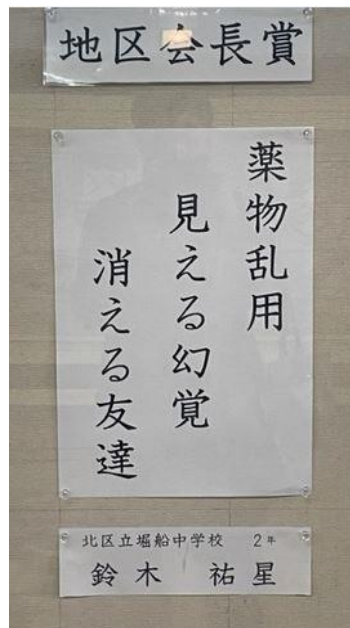 地区会長賞
薬物乱用
見える幻覚
消える友達
北区立堀船中学校 2年
鈴木 祐星